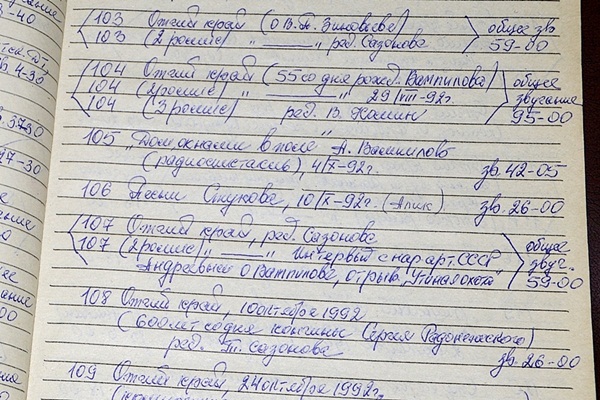 103 Отчий край (о В.П. Зиновьеве) общее зв.
103 (2 ролик) " —— " ред. Сазонова 59-00
104 Отчий край (55 со дня рожд. Вампилова) общее
104 (2 ролик) " —— " 29/VIII-92г. звучание
104 (3 ролик) ред. В. 95-00
105 "Дом окнами в поле" А. Вампилов
(радиоспектакль), 4/X-92г. зв. 42-05
106 Песни 10/X-92г. зв. 26-00
107 Отчий край, ред. Сазонова общее
107 (2 ролик) " —— " Интервью с нар. арт. СССР звуч.
Андреевым о Вампилове, отрыв. "Утиная охота" 59-00
108 Отчий край, 10 октября 1992
(600 лет со дня кончины Сергия Радонежского)
ред. Сазонова зв. 26-00
109 Отчий край 24 октября 1992г.